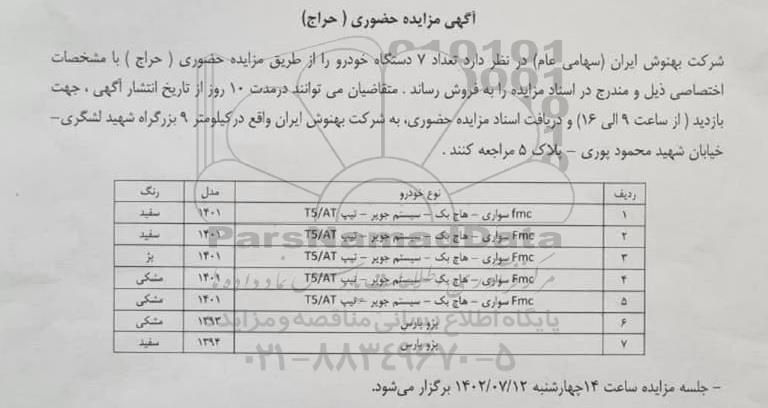 آگهی مزایده حضوری ( حراج)
شرکت بهنوش ایران (سهامی عام) در نظر دارد تعداد ۷ دستگاه خودرو را از طریق مزایده حضوری ( حراج ) با مشخصات
اختصاصی ذیل و مندرج در اسناد مزایده را به فروش رساند . متقاضیان می توانند درمدت ۱۰ روز از تاریخ انتشار آگهی ، جهت
بازدید ( از ساعت ۹ الی ۱۶) و دریافت اسناد مزایده حضوری، به شرکت بهنوش ایران واقع درکیلومتر ۹ بزرگراه شهید لشگری-
خیابان شهید محمود پوری - پلاک ۵ مراجعه کنند .
ردیف نوع خودرو مدل رنگ
۱ fmc سواری - هاچ بک - سیستم جویر - تیپ T5/AT ۱۴۰۱ سفید
۲ Fmc سواری - هاچ بک - سیستم جویر - تیپ T5/AT ۱۴۰۱ سفید
۳ Fmc سواری - هاچ بک - سیستم جویر - تیپ T5/AT ۱۴۰۱ بژ
۴ Fmc سواری - هاچ بک - سیستم جویر - تیپ T5/AT ۱۴۰۱ مشکی
۵ Fmc سواری - هاچ بک - سیستم جویر - تیپ T5/AT ۱۴۰۱ مشکی
۶ پژو پارس ۱۳۹۳ مشکی
۷ پژو پارس ۱۳۹۴ سفید
- جلسه مزایده ساعت ۱۴چهارشنبه ۱۴۰۲/۰۷/۱۲ برگزار می‌شود.
ParsNamadData
پایگاه اطلاع رسانی مناقصه و مزایده
۰۲۱-۸۸۳۴۹۶۷۰-۵